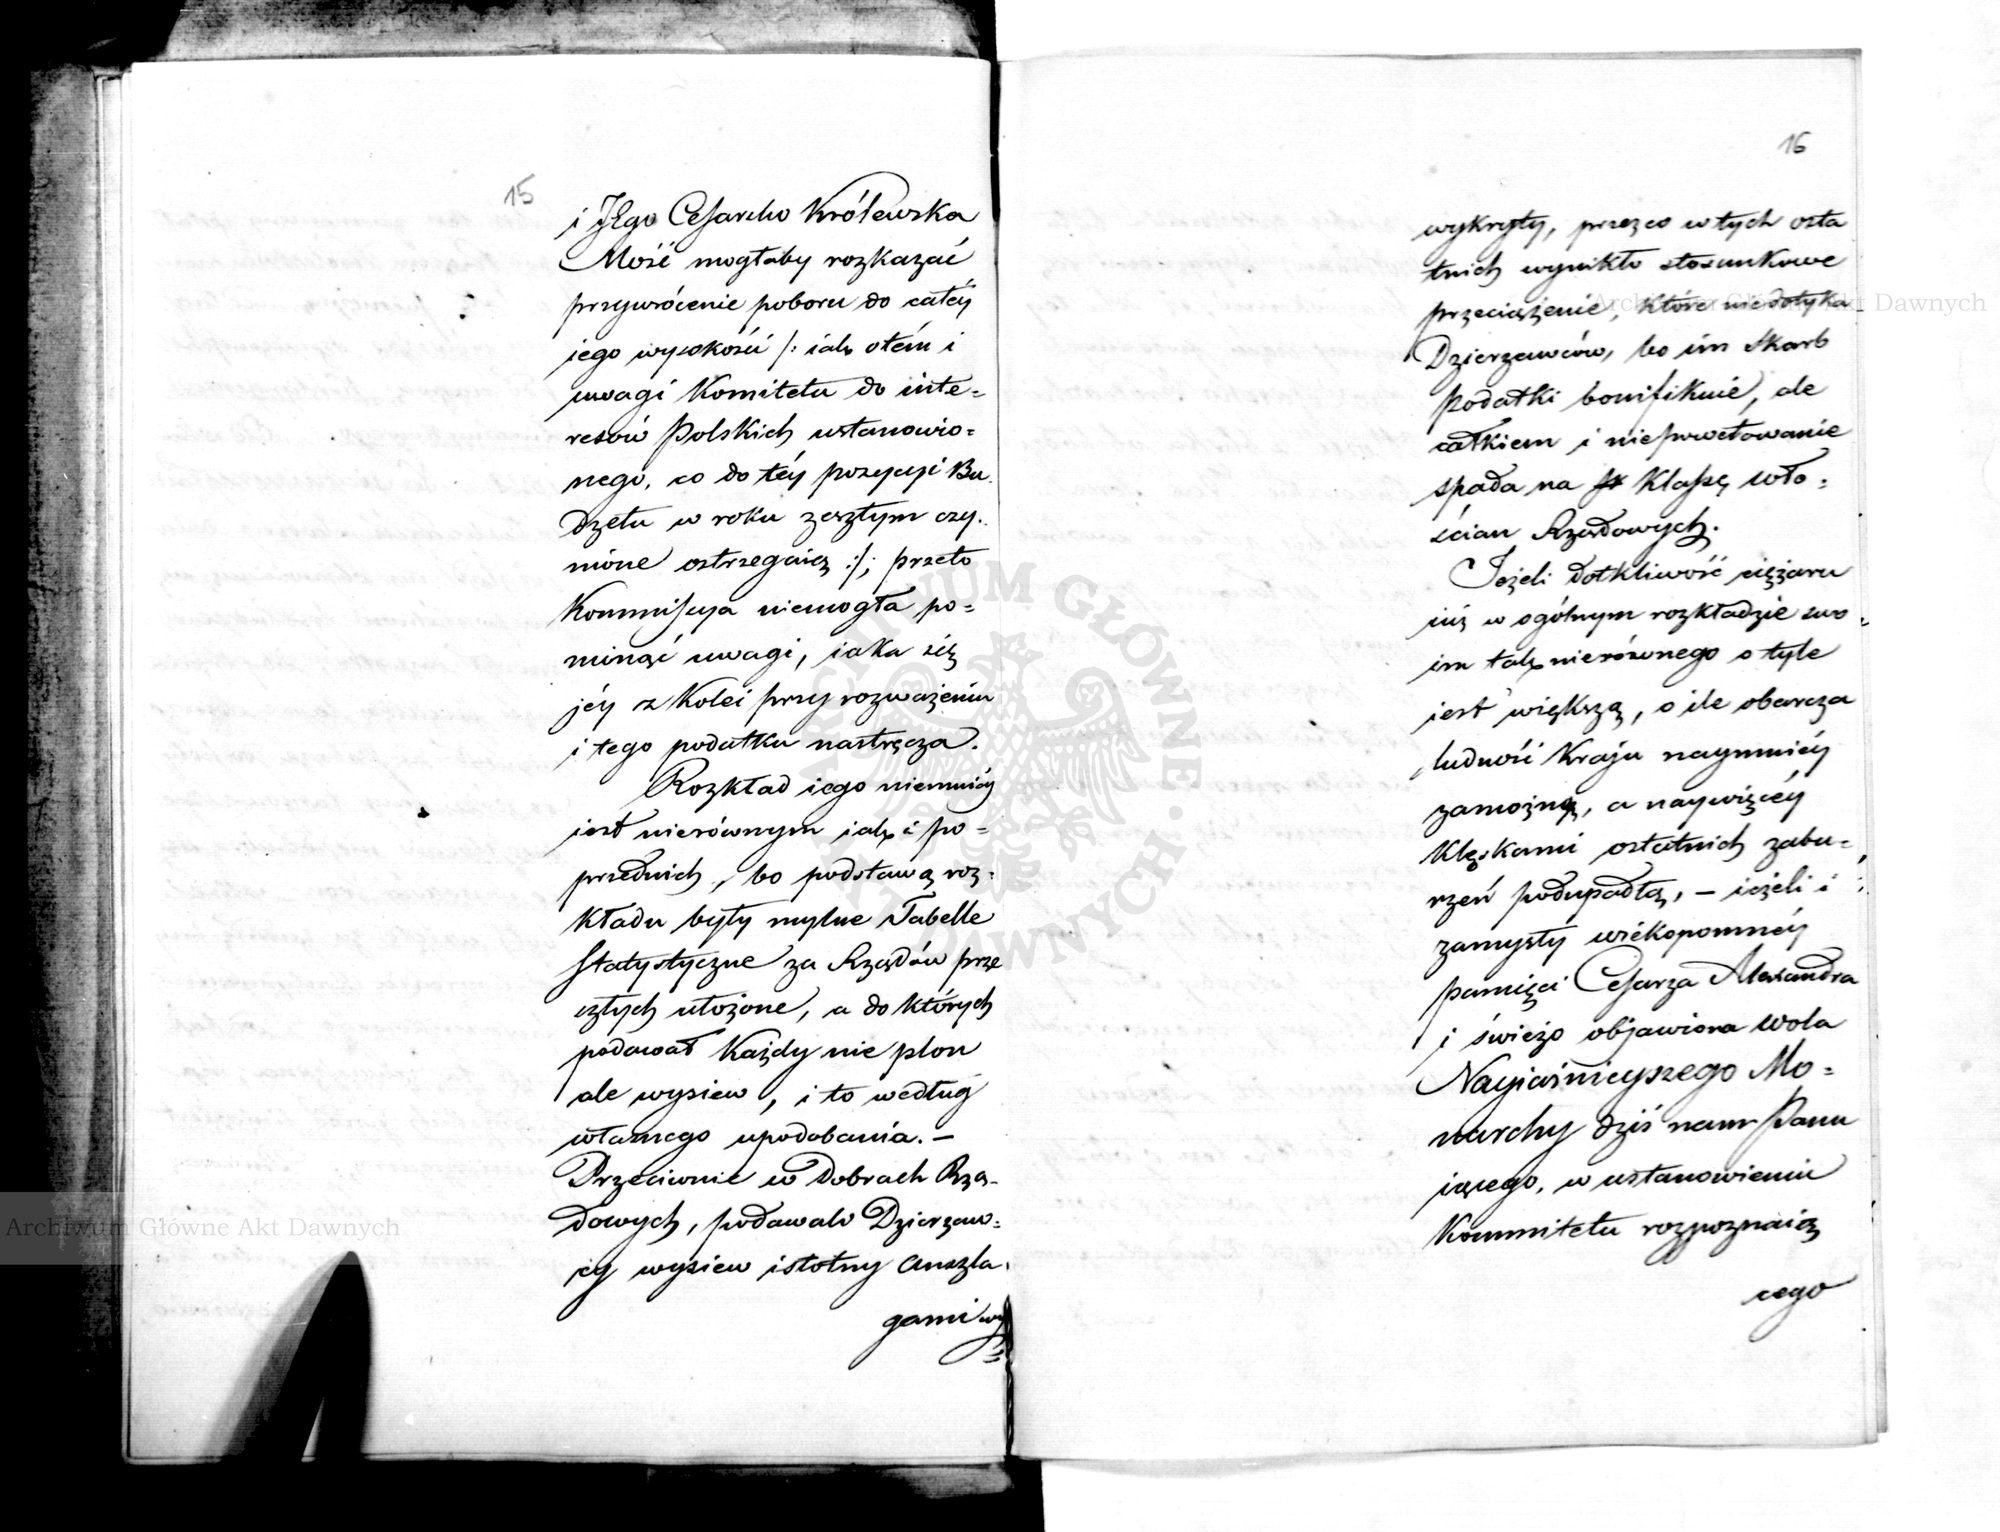 15
i JEgo Cesarcko Królewska
Mość mogłaby rozkazać
przywrócenie poboru do całéy
iego wysokości /: iak otém i
uwagi Komitetu do inte=
resów Polskich ustanowio=
nego, co do téy pozycyi Bu
dzetu w roku zeszłym czy=
nione ostrzegaią :/; przeto
Kommissya niemogła po=
minąć uwagi, iaka się
jéy z Kolei przy rozważeniu
i tego podatku nastręcza.
Rozkład iego niemniéy
iest nierównym iak i po=
przednich, bo podstawą roz=
kładu były mylne Tabelle
Statystyczne za Rządów prze
szłych ułożone, a do których
podawał Każdy nie plon
ale wysiew, i to według
własnego upodobania. –
Przeciwnie w Dobrach Rzą=
dowych, podawali Dzierzaw=
cy wysiew istotny Anszla=
gami wy
=
16
wykryty, przezco w tych osta
tnich wynikło stosunkowe
przeciążenie, które niedotyka
Dzierzawców, bo im Skarb
podatki bonifikuie, ale
całkiem i niepowetowanie
spada na Klassę wło=
ścian Rządowych.
Jeżeli dotkliwość ciężaru
iuż w ogólnym rozkładzie swo=
im tak nierównego o tyle
iest większą, o ile obarcza
ludność Kraju naymniéy
zamożną, a naywięcéy
Klęskami ostatnich zabu=
rzeń podupadłą, – ieżeli i
zamysły wiekopomnéy
pamięci Cesarza Alexandra
i świeżo objawiona wola
Nayiaśnieyszego Mo=
narchy dziś nam Panu
iącego, w ustanowieniu
Kommitetu rozpoznaią
cego
Archiwum Główne Akt Dawnych
Archiwum Główne Akt Dawnych
ARCHIWUM GŁÓWNE AKT DAWNYCH